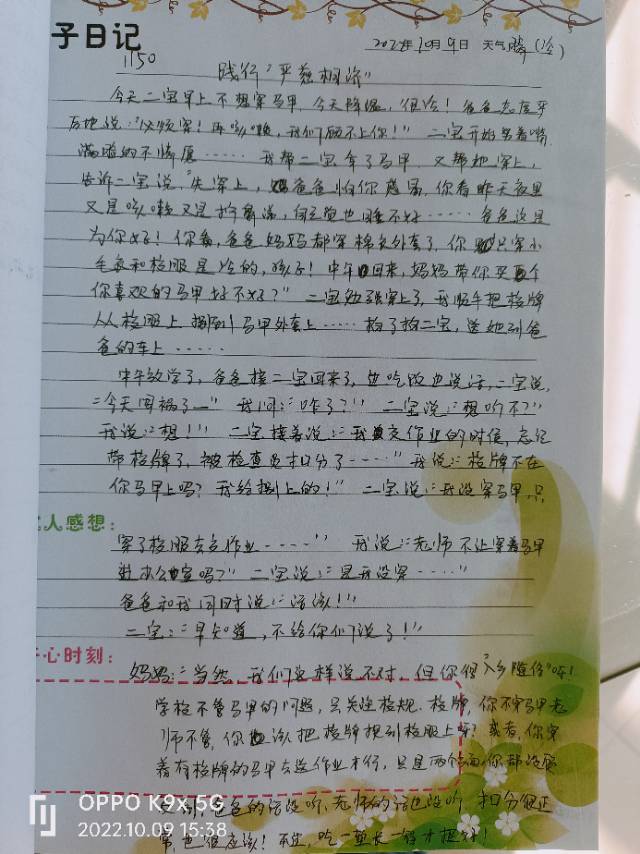 子日记
2022年10月9日 天气 晴（冷）
1150
践行“严慈相济”
今天二宝早上不想穿马甲，今天降温，很冷！爸爸态度平
方地说：“必须穿！再咳嗽，我们顾不上你！”二宝开始哭着嘴，
满脸的不情愿……我帮二宝拿了马甲，又帮她穿上，
告诉二宝说，“先穿上，爸爸怕你感冒，你看昨天夜里
又是咳嗽又是擤鼻涕，觉也睡不好……爸爸这是
为你好！你看，爸爸妈妈都穿棉衣外套了，你只穿小
毛衣和校服是冷的，孩子！中午回来，妈妈带你买个
你喜欢的马甲好不好？”二宝勉强穿上了，我顺手把校牌
从校服上挪到马甲外套上……拍了拍二宝，送她到爸
爸的车上……
中午放学了，爸爸接二宝回来了，边吃饭边说话，二宝说，
“今天闯祸了—”我问：“咋了？”二宝说：“想听不？”
我说：“想！”二宝接着说：“我交作业的时候，忘记
带校牌了，被检查员扣分了……”我说：“校牌不在
你马甲上吗？我给挪上的！”二宝说：“我没穿马甲，只
人感想：
穿了校服去交作业……”我说：“老师不让穿着马甲
进办公室吗？”二宝说：“是我没穿……”
爸爸和我同时说：“活该！”
二宝：“早知道，不给你们说了！”
心时刻：
妈妈：“当然，我们这样说不对，但你得“入乡随俗”呀！
学校不管马甲的问题，只关注校规、校牌，你不穿马甲老
师不管，你应该把校牌换到校服上呀？或者，你穿
着有校牌的马甲去送作业才行，只是两个方面你都没
到，爸爸的话没听，老师的话也没听，扣分很正
常，也很应该！不过，吃一堑长一智才把好！
OPPO K9x 5G
2022.10.09 15:38